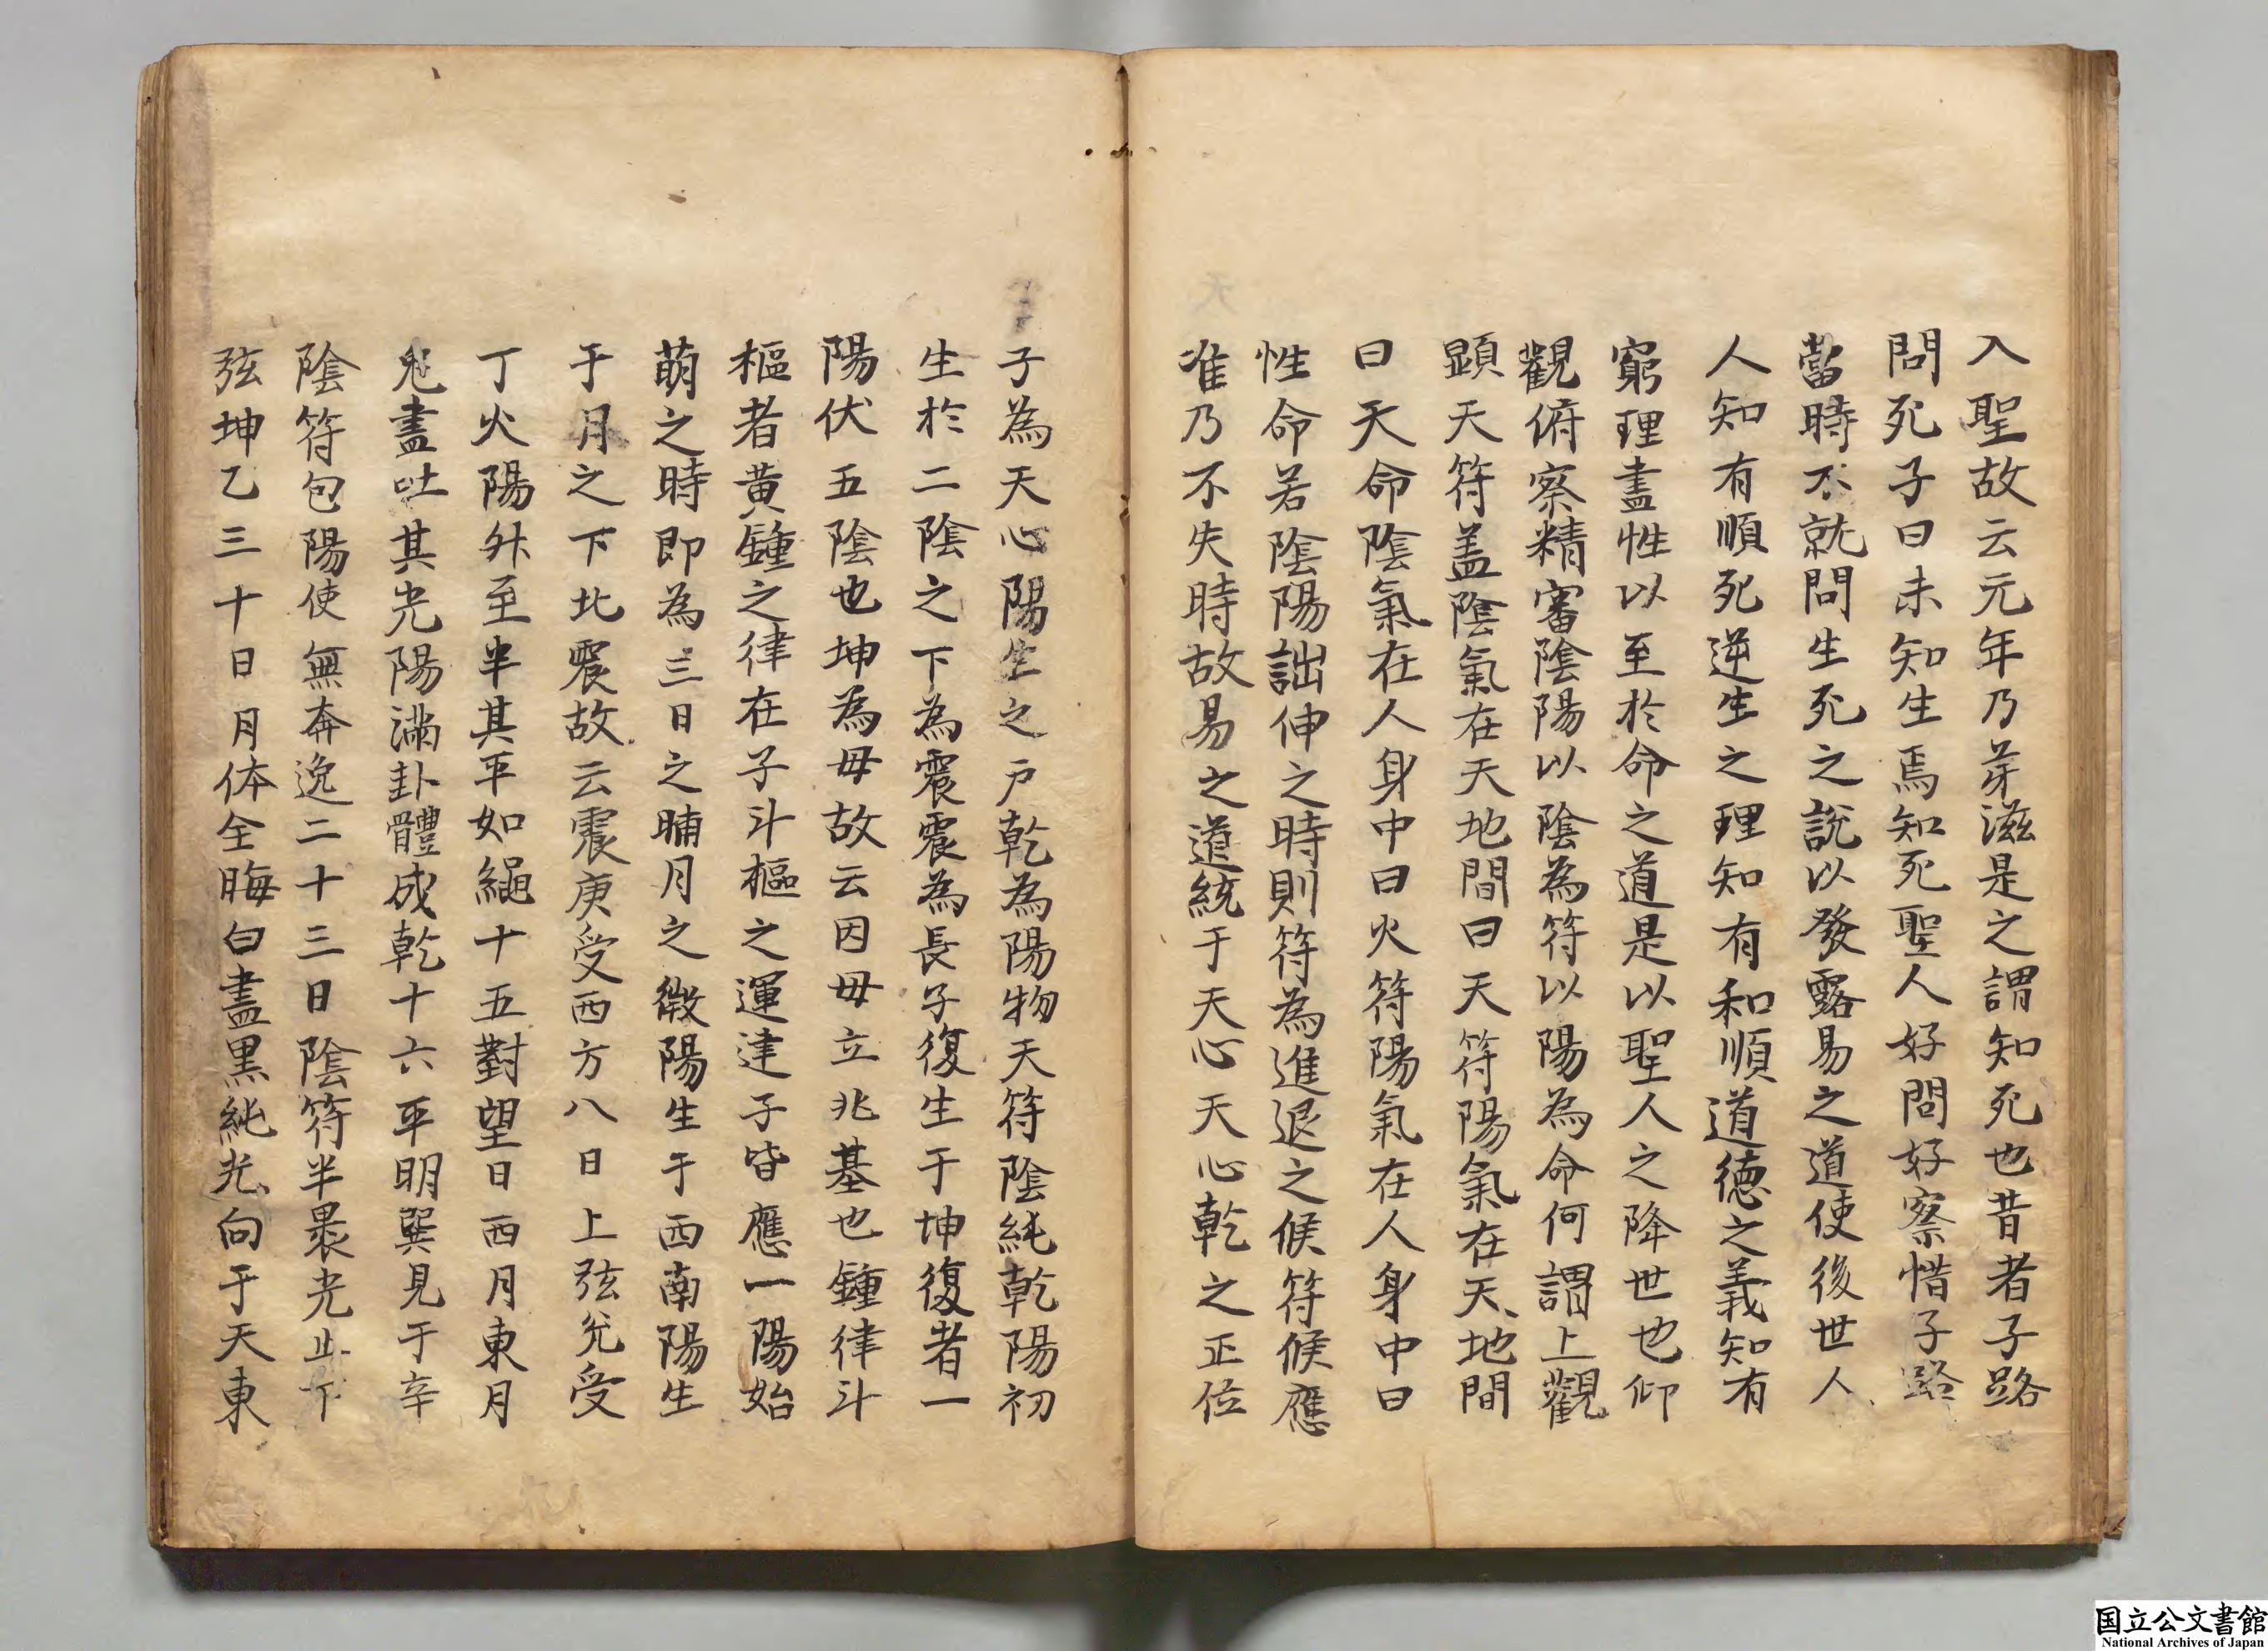 入聖故云元年乃芽滋是之謂知死也昔者子路
問死子曰未知生焉知死聖人好問好察惜子路
當時不就問生死之說以發露易之道使後世人
人知有順死逆生之理知有和順道德之義知有
窮理盡性以至於命之道是以聖人之降世也仰
觀俯察精審陰陽以陰為符以陽為命何謂上觀
顕天符盖陰氣在天地間曰天符陽氣在天地間
曰天命陰氣在人身中曰火符陽氣在人身中曰
性命若陰陽詘伸之時則符為進退之候符候應
准乃不失時故易之道統于天心天心乾之正位
子為天心陽生之戸乾為陽物天符陰純乾陽初
生於二陰之下為震震為長子復生于坤復者一
陽伏五陰也坤為毋故云因毋立兆基也鍾律斗
樞者黄鍾之律在子斗樞之運建子皆應一陽始
萌之時即為三日之晡月之微陽生于西南陽生
于月之下北震故云震庚受西方八日上弦兌受
丁火陽升至半其平如繩十五對望日西月東月
皃盡吐其光陽滿卦體成乾十六平明巽見于辛
陰符包陽使無奔逸二十三日陰符半暴光止下
弦坤乙三十日月体全晦白盡黒純光向于天東
国立公文書館
National Archives of Japan